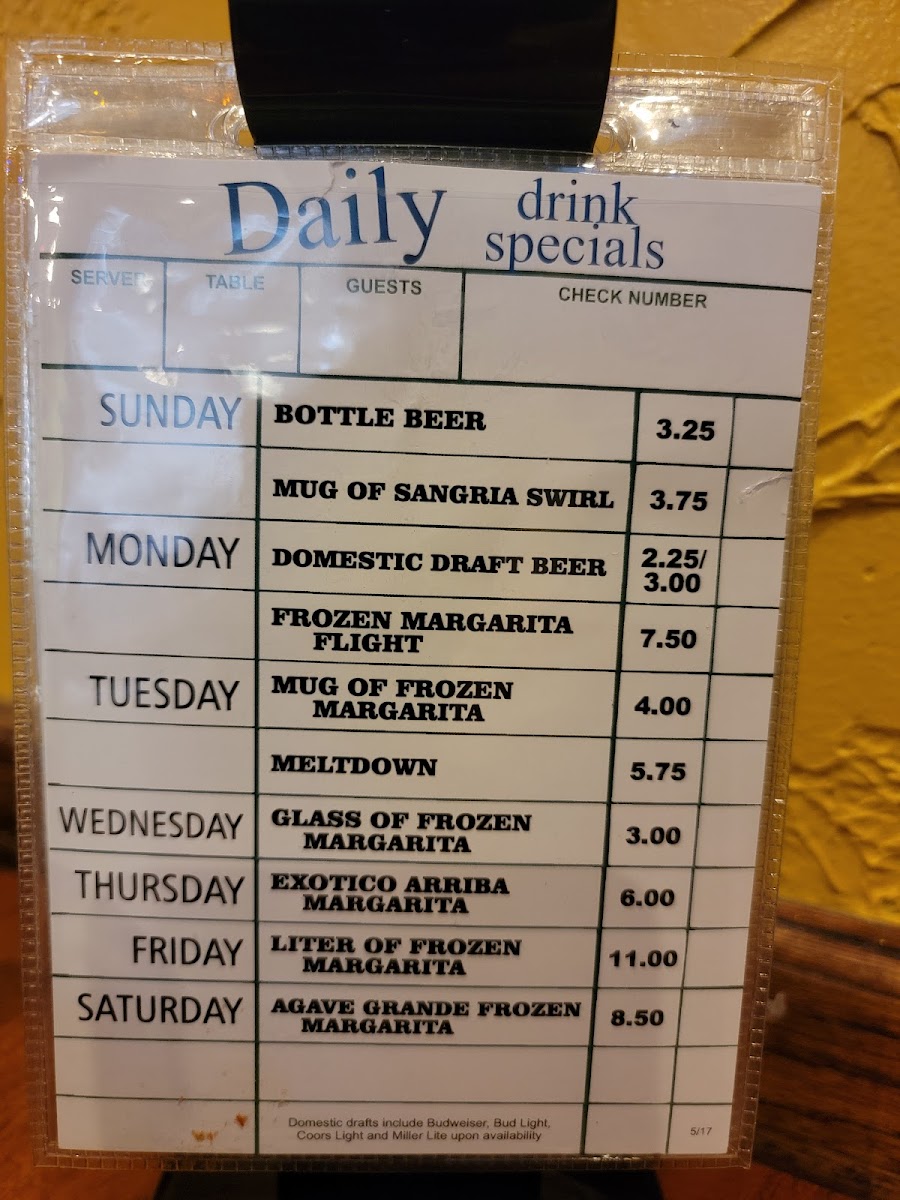 Daily drink
specials
SERVER TABLE GUESTS CHECK NUMBER
SUNDAY BOTTLE BEER 3.25
MUG OF SANGRIA SWIRL 3.75
MONDAY DOMESTIC DRAFT BEER 2.25/
3.00
FROZEN MARGARITA
FLIGHT 7.50
TUESDAY MUG OF FROZEN
MARGARITA 4.00
MELTDOWN 5.75
WEDNESDAY GLASS OF FROZEN
MARGARITA 3.00
THURSDAY EXOTICO ARRIBA
MARGARITA 6.00
FRIDAY LITER OF FROZEN
MARGARITA 11.00
SATURDAY AGAVE GRANDE FROZEN
MARGARITA 8.50
Domestic drafts include Budweiser, Bud Light,
Coors Light and Miller Lite upon availability
5/17